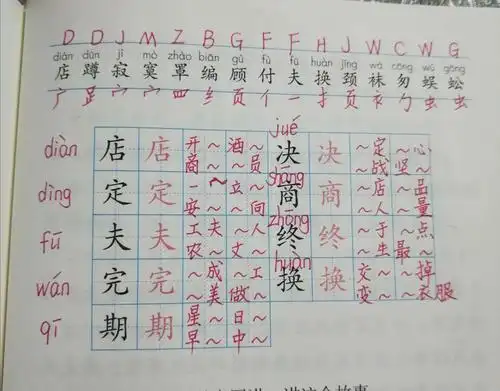 D D J M Z B G F F H J W C W G
diàn dūn jì mò zhào biān gù fù fū huàn jǐng wà cōng wú gōng
店 蹲 寂 寞 罩 编 顾 付 夫 换 颈 袜 匆 蜈 蚣
广 𧾷 宀 宀 罒 纟 页 亻 一 扌 页 衤 勹 虫 虫
jué
diàn 店 店 开~ 酒~ 决 决 ~定 ~心
商~ ~员 ~战 坚~
shāng
dìng 定 定 一~ ~立 商 商 ~店 ~品
安~ ~向 ~人 ~量
zhōng
fū 夫 夫 工夫 ~人 终 终 ~于 ~点
农~ ~丈 ~生 最~
huàn
wán 完 完 ~成 ~工 换 换 交~ ~掉
~美 做~ 变~ ~衣服
qī 期 期 星~ 日~
早~ 中~